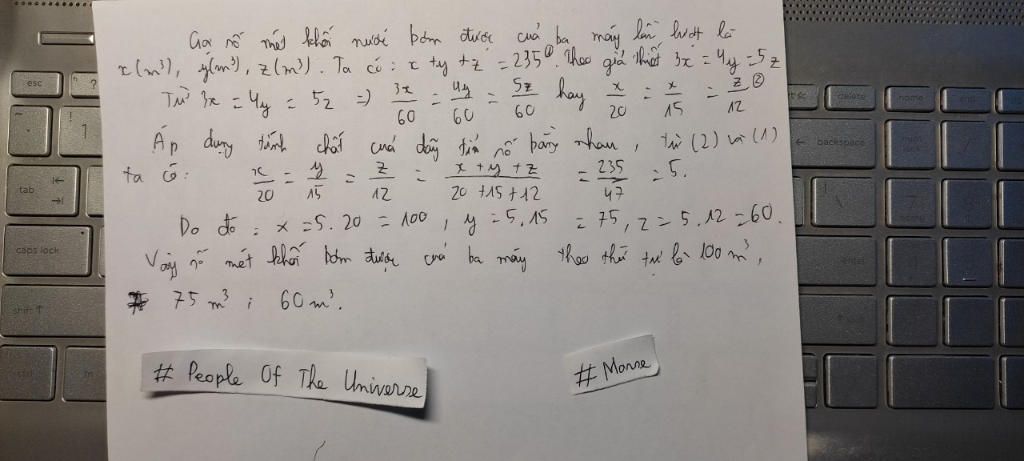 Gọi số mét khối nước bơm được của ba máy lần lượt là
x(m³), y(m³), z(m³). Ta có: x + y + z = 235 ①. Theo giả thiết 3x = 4y = 5z
Từ 3x = 4y = 5z => 3x/60 = 4y/60 = 5z/60 hay x/20 = x/15 = z/12 ②
Áp dụng tính chất của dãy tỉ số bằng nhau, từ (2) và (1)
ta có: x/20 = y/15 = z/12 = x + y + z/20 + 15 + 12 = 235/47 = 5.
Do đó: x = 5.20 = 100, y = 5.15 = 75, z = 5.12 = 60.
Vậy số mét khối bơm được của ba máy theo thứ tự là 100 m³,
75 m³; 60 m³.
# People Of The Universe
# Morse
esc
tab
caps lock
shift ↑
ctrl
fn
!
1
delete
home
← backspace